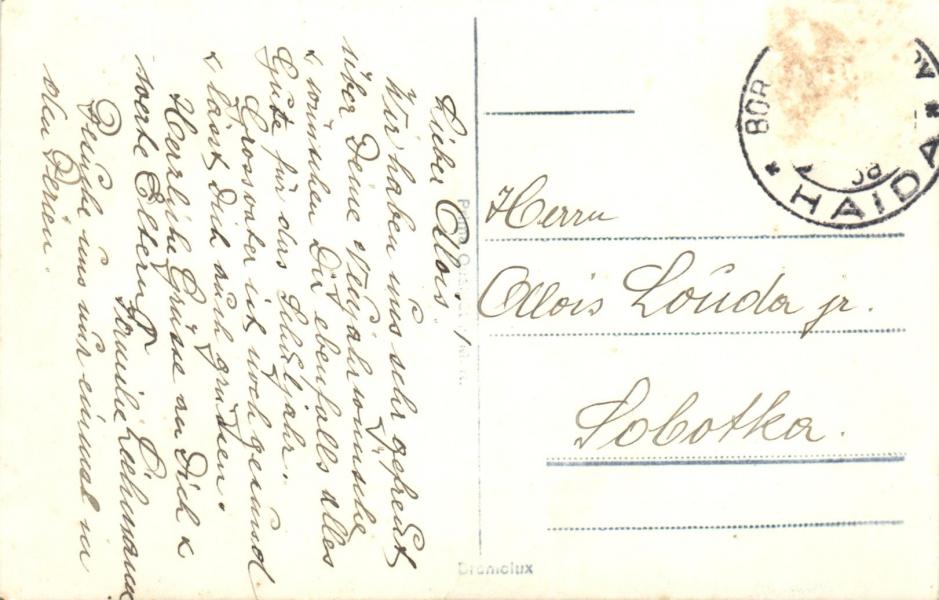 Lieber Alois!
Wir haben uns sehr gefreut
über Deine Neujahrwünsche
& wünschen Dir ebenfalls alles
Gute für das Schuljahr.
Grossvater ist noch gesund
& lässt Dich auch grüssen.
Herzliche Grüsse an Dich &
werte Eltern
Familie Lehmann
Besuche uns nur einmal in
den Ferien.
Herrn
Alois Louda jr.
Sobotka.
BOR
* HAIDA *
Bromolux